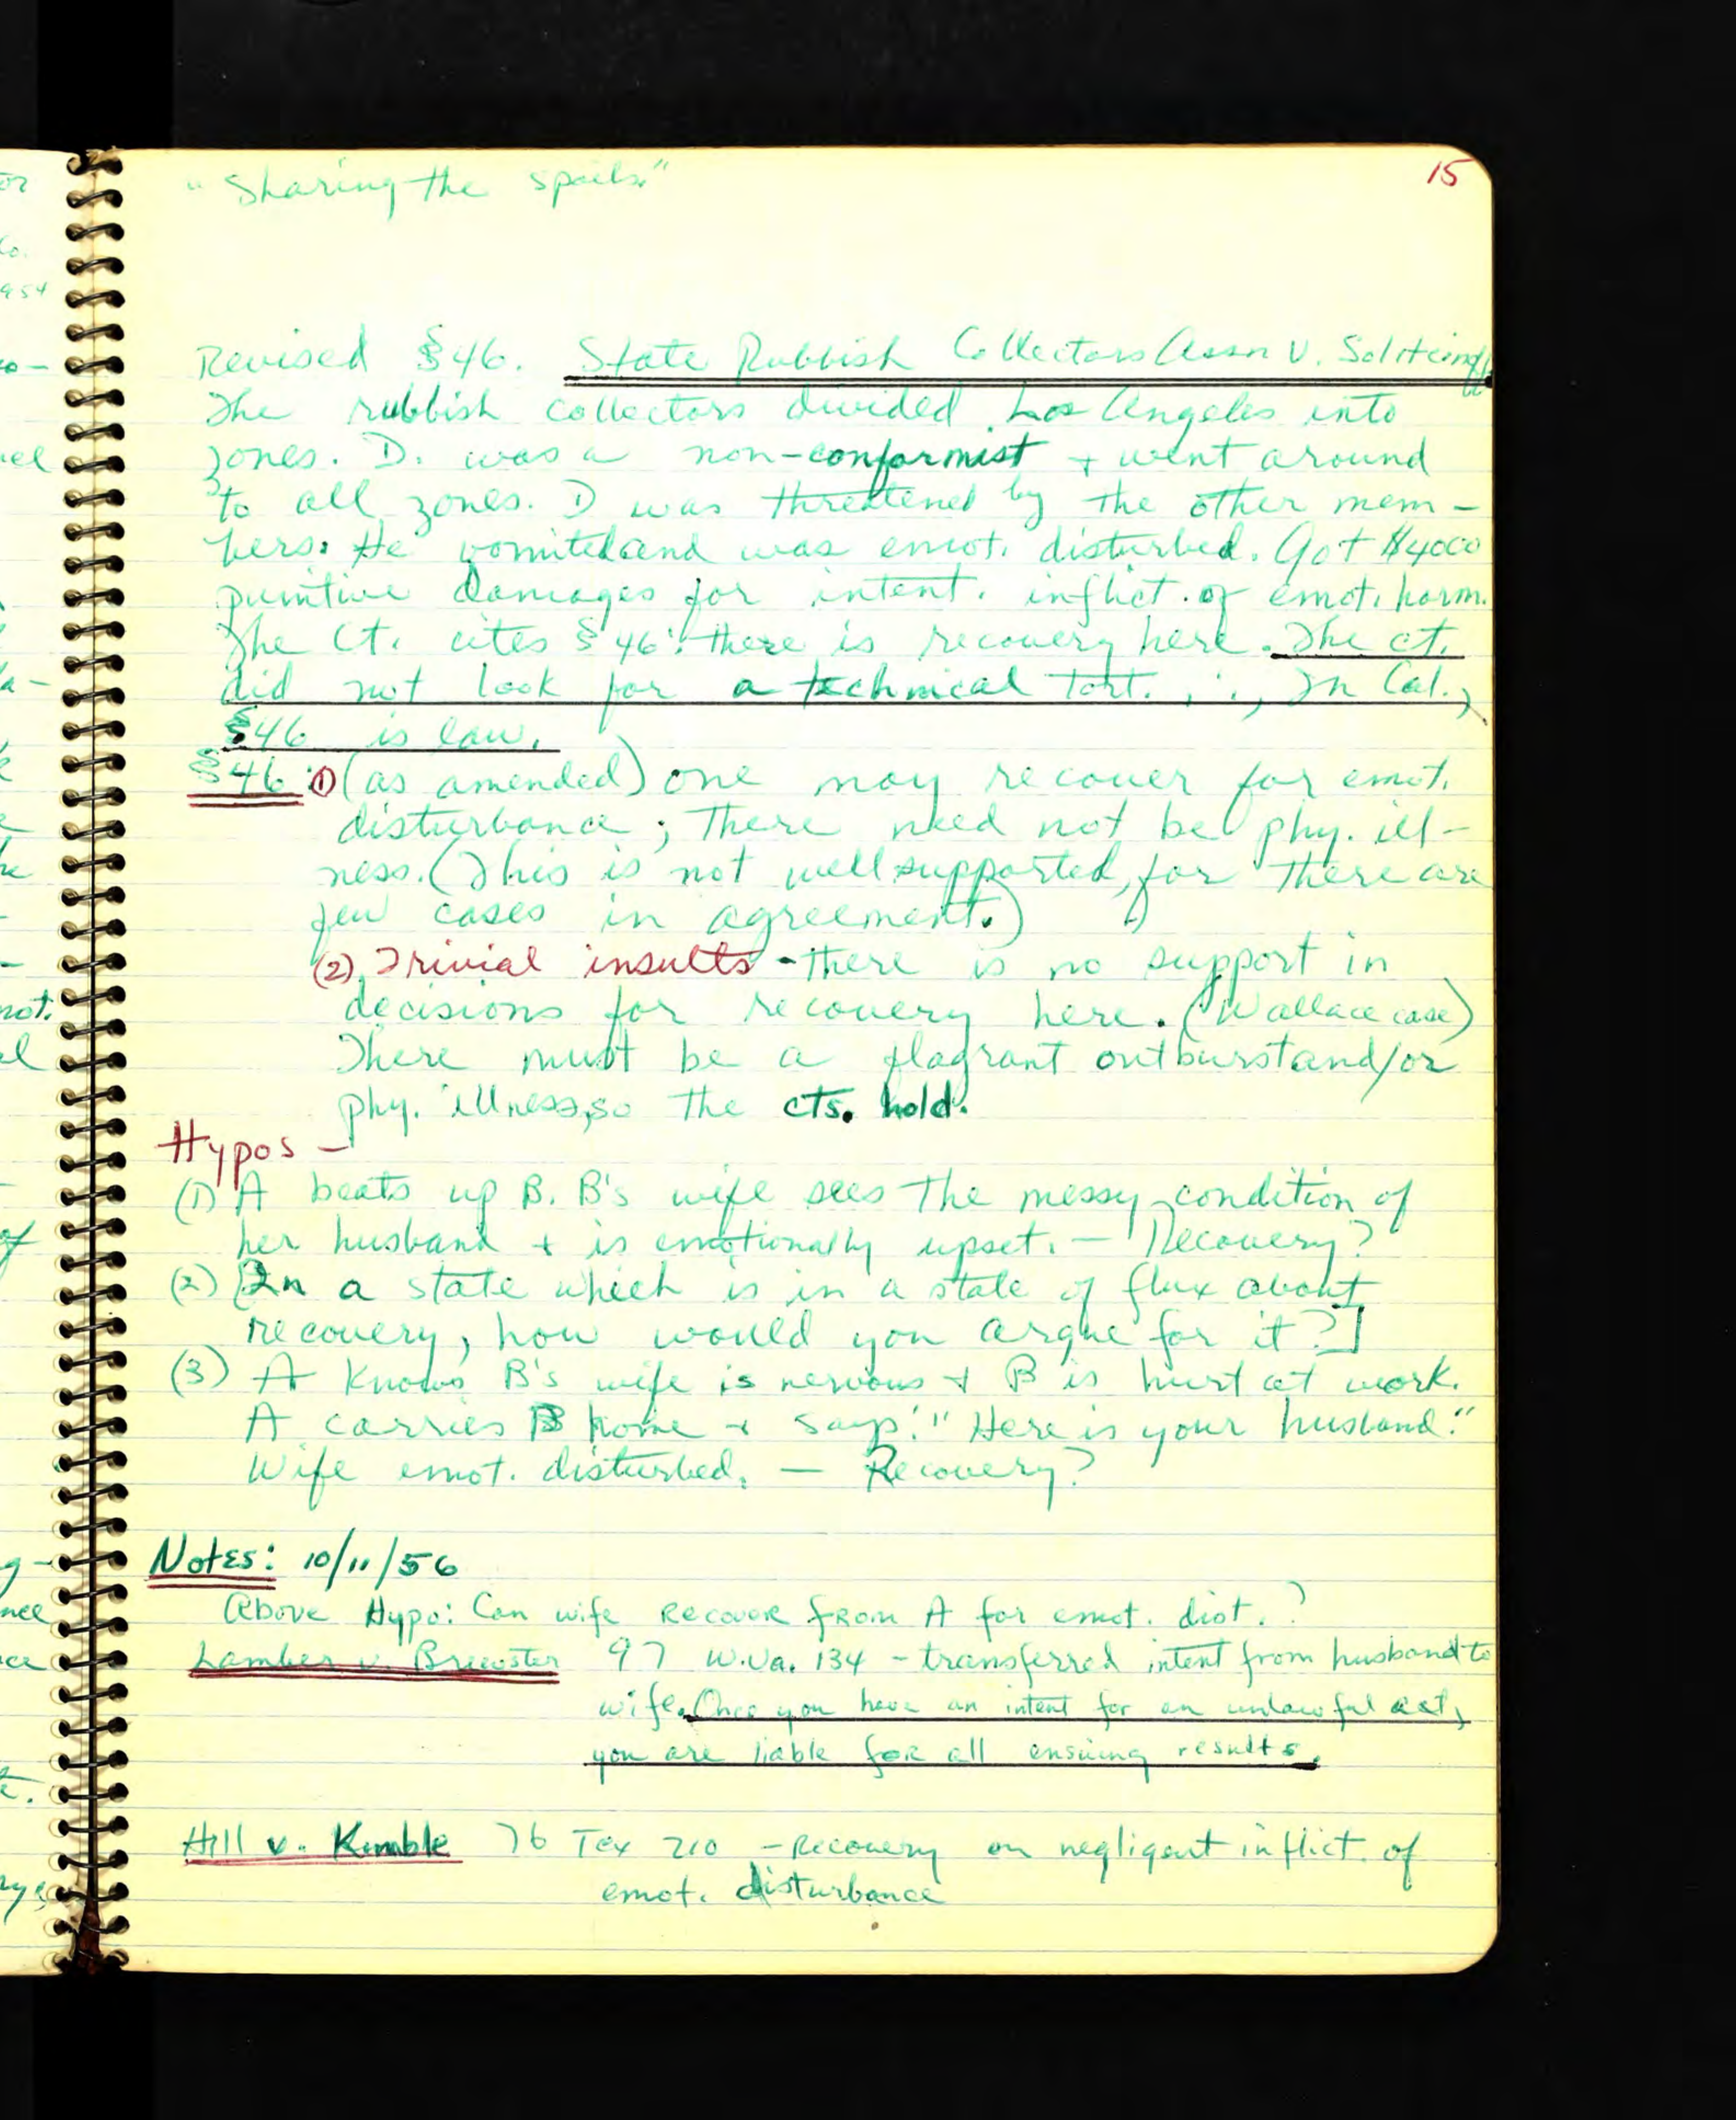 "Sharing the spoils."
15
Revised §46. State Rubbish Collectors Assn v. Soliticinoff
The rubbish collectors divided Los Angeles into
zones. D. was a non-conformist + went around
to all zones. D was threatened by the other mem-
bers: He vomited and was emot. disturbed. Got $4000
punitive damages for intent. inflict. of emot. harm.
The Ct. cites §46: there is recovery here. The ct.
did not look for a technical tort. ∴, In Cal.,
§46 is law.
§46: (1) (as amended) one may recover for emot.
disturbance; There need not be phy. ill-
ness. (This is not well supported, for there are
few cases in agreement.)
(2) Trivial insults - there is no support in
decisions for recovery here. (Wallace case)
There must be a flagrant outburst and/or
phy. illness, so the cts. hold.
Hypos -
(1) A beats up B. B's wife sees the messy condition of
her husband + is emotionally upset. - Recovery?
(2) [In a state which is in a state of flux about
recovery, how would you argue for it?]
(3) A knows B's wife is nervous + B is hurt at work.
A carries B home + says: "Here is your husband."
Wife emot. disturbed. - Recovery?
Notes: 10/11/56
Above Hypo: Can wife recover from A for emot. dist.?
Lamber v. Brewster 97 W.Va. 134 - transferred intent from husband to
wife. Once you have an intent for an unlawful act,
you are liable for all ensuing results.
Hill v. Kimble 76 Tex 210 - Recovery on negligent inflict. of
emot. disturbance